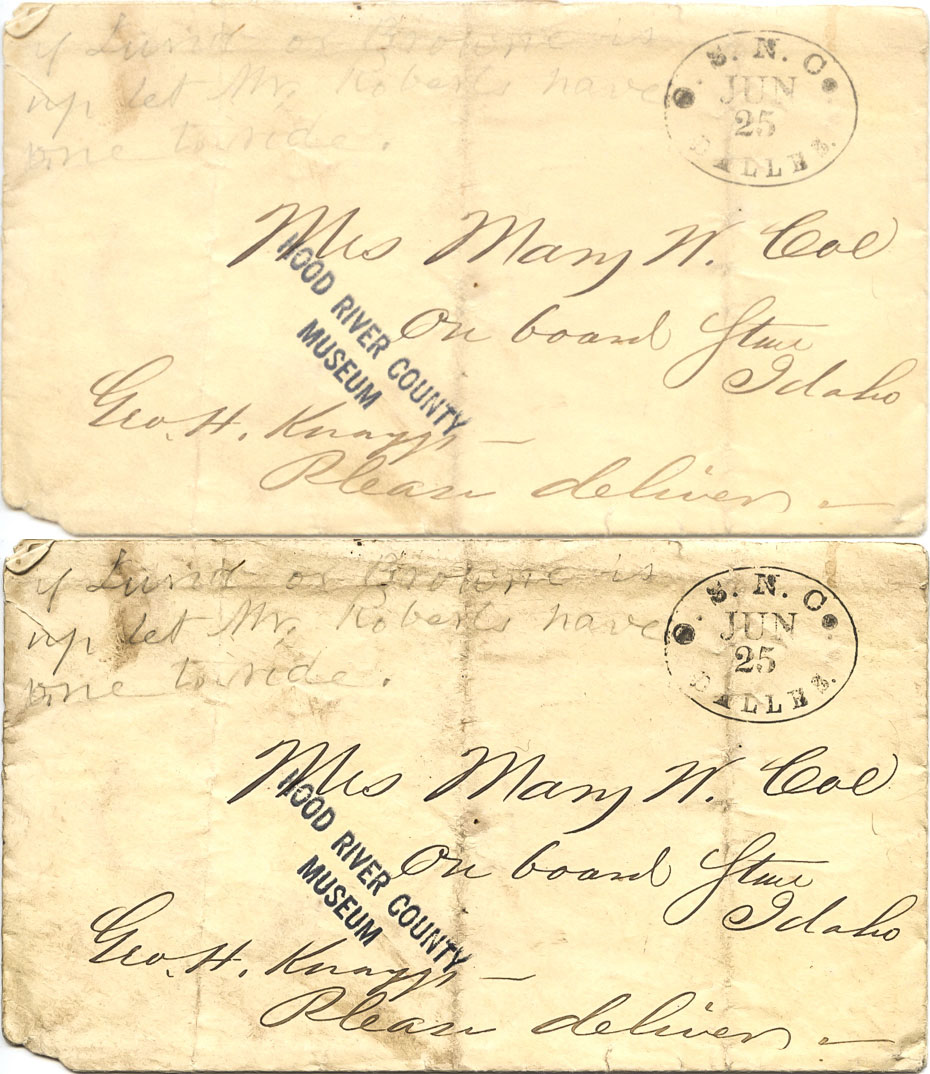 if Lund or Browne is
up let Mr. Roberts have
one to ride.
O. S. N. Co.
JUN
25
DALLES.
Mrs Mary W. Coe
On board Stmr
Idaho
HOOD RIVER COUNTY
MUSEUM
Geo. H. Knapp —
Please deliver —
if Lund or Browne is
up let Mr. Roberts have
one to ride.
O. S. N. Co.
JUN
25
DALLES.
Mrs Mary W. Coe
On board Stmr
Idaho
HOOD RIVER COUNTY
MUSEUM
Geo. H. Knapp —
Please deliver —